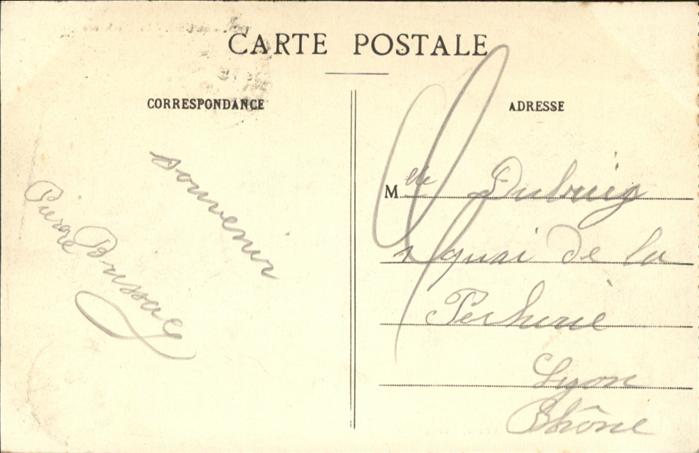 CARTE POSTALE
CORRESPONDANCE
souvenir
Pierre Brissac
ADRESSE
Mlle Dubuig
1 quai de la
Pêcherie
Lyon
Rhône